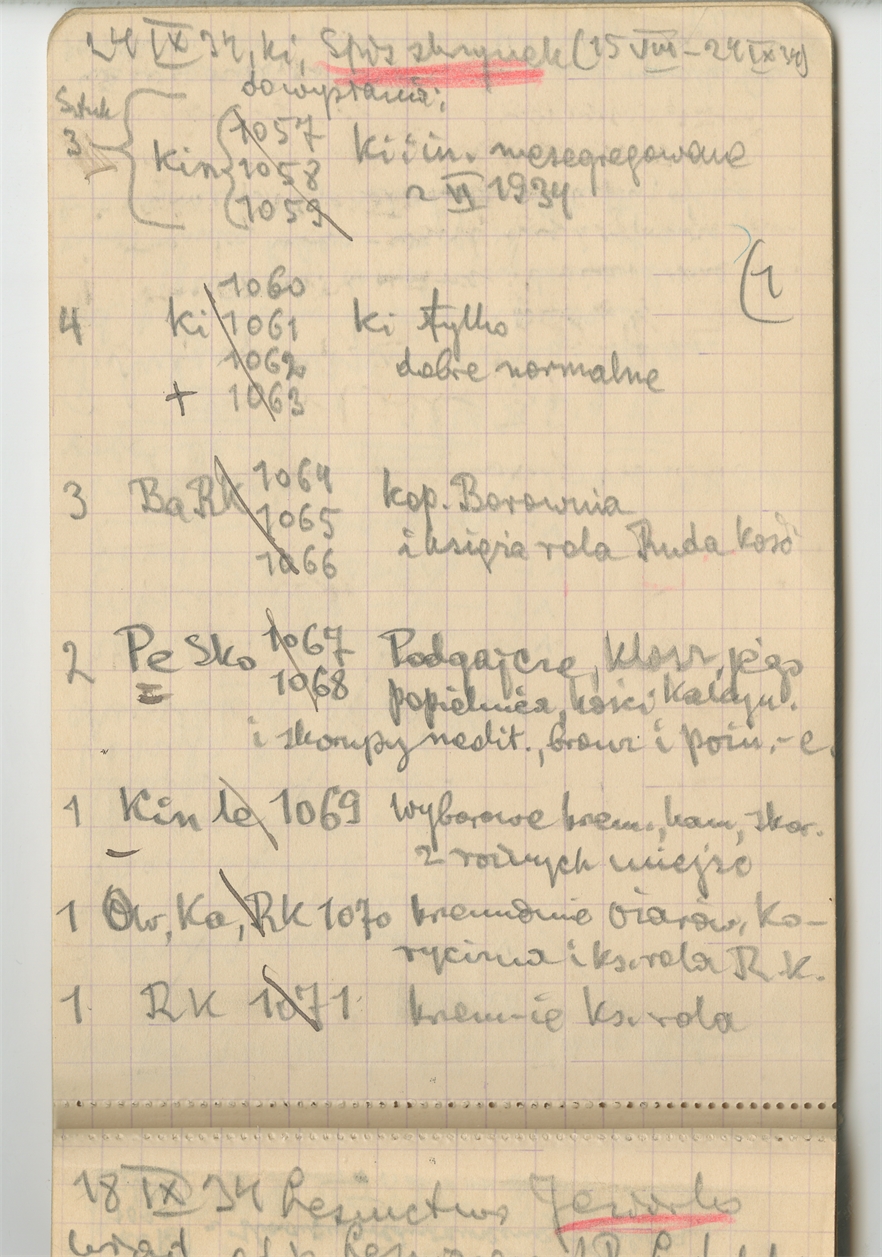 24 IX 34, ki, Spis skrzynek (15 VIII - 24 IX 34)
do wysłania;
Sztuk
3 kin 1057 ki i in. niesegregowane
1058 z VI 1934
1059
(1
1060
4 ki 1061 ki tylko
1062 dobre normalne
+ 1063
1064 kop. Borownia
3 BaRk 1065 i księża rola Ruda Kość
1066
2 Pe Sko 1067 Podgajcze, klosz, jego
1068 popielnica, kości
i skorupy neolit., bronz i późn.
1 Kin le 1069 Wyborowe krzem., kam, skor.
z różnych miejsc
1 Ow, Ka, RK 1070 krzemienie Ożarów, Ko-
rycizna i ks. rola R.K.
1 RK 1071 krzem-ie ks. rola
18 IX 34 Leśnictwo Jeziorko